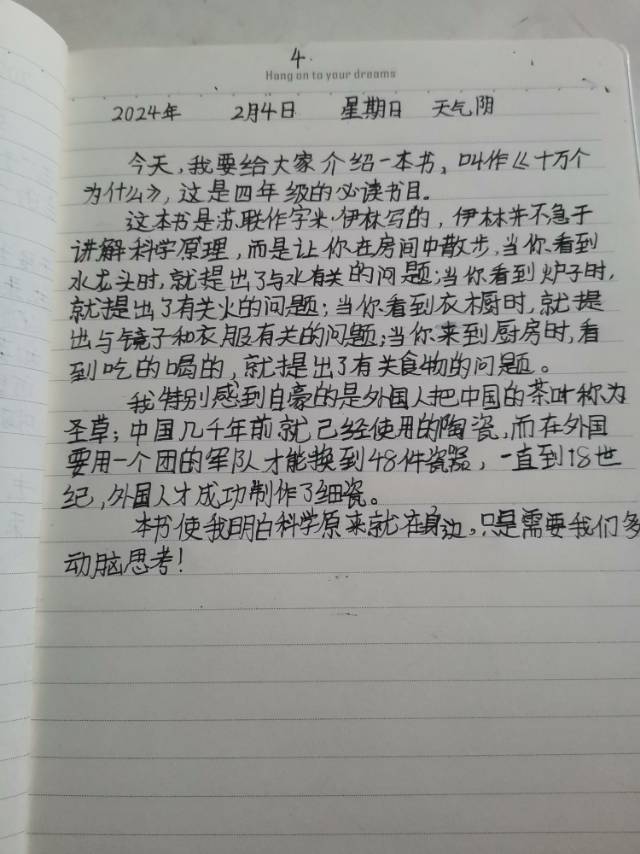 4.
Hang on to your dreams
2024年 2月4日 星期日 天气阴
今天,我要给大家介绍一本书,叫作《十万个
为什么》,这是四年级的必读书目。
这本书是苏联作字米·伊林写的,伊林并不急于
讲解科学原理,而是让你在房间中散步,当你看到
水龙头时,就提出了与水有关的问题;当你看到炉子时,
就提出了有关火的问题;当你看到衣橱时,就提
出与镜子和衣服有关的问题;当你来到厨房时,看
到吃的喝的,就提出了有关食物的问题。
我特别感到自豪的是外国人把中国的茶叶称为
圣草;中国几千年前就已经使用的陶瓷,而在外国
要用一个团的军队才能换到48件瓷器,一直到18世
纪,外国人才成功制作了细瓷。
本书使我明白科学原来就在身边,只是需要我们多
动脑思考!